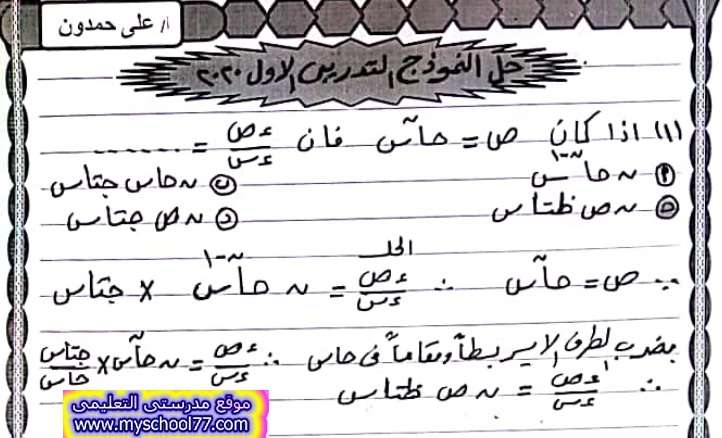 أ/ على حمدون
حل النموذج التدريبى الاول ٢٠٢٠
(١) اذا كان ص = حاⁿس فان ءص/ءس = ......
أ ن حاⁿ⁻¹س ب ن حاس جتاس
ح ن ص ظتاس د ن ص جتاس
الحل
∵ ص = حاⁿس ∴ ءص/ءس = ن حاⁿ⁻¹س × جتاس
بضرب الطرف الايسر بسطاً ومقاماً فى حاس ∴ ءص/ءس = ن حاⁿس × جتاس/حاس
∴ ءص/ءس = ن ص ظتاس
موقع مدرستى التعليمى
www.myschool77.com